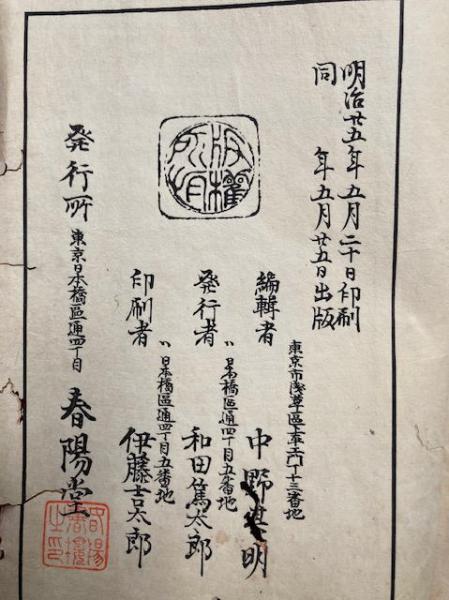 明治廿五年五月二十日印刷
同　年五月廿五日出版
版權所有
東京市浅草區上平十三番地
編輯者　中野其明
〃日本橋區通四丁目五番地
発行者　和田篤太郎
〃日本橋區通四丁目五番地
印刷者　伊藤吉太郎
発行所　東京日本橋區通四丁目　春陽堂